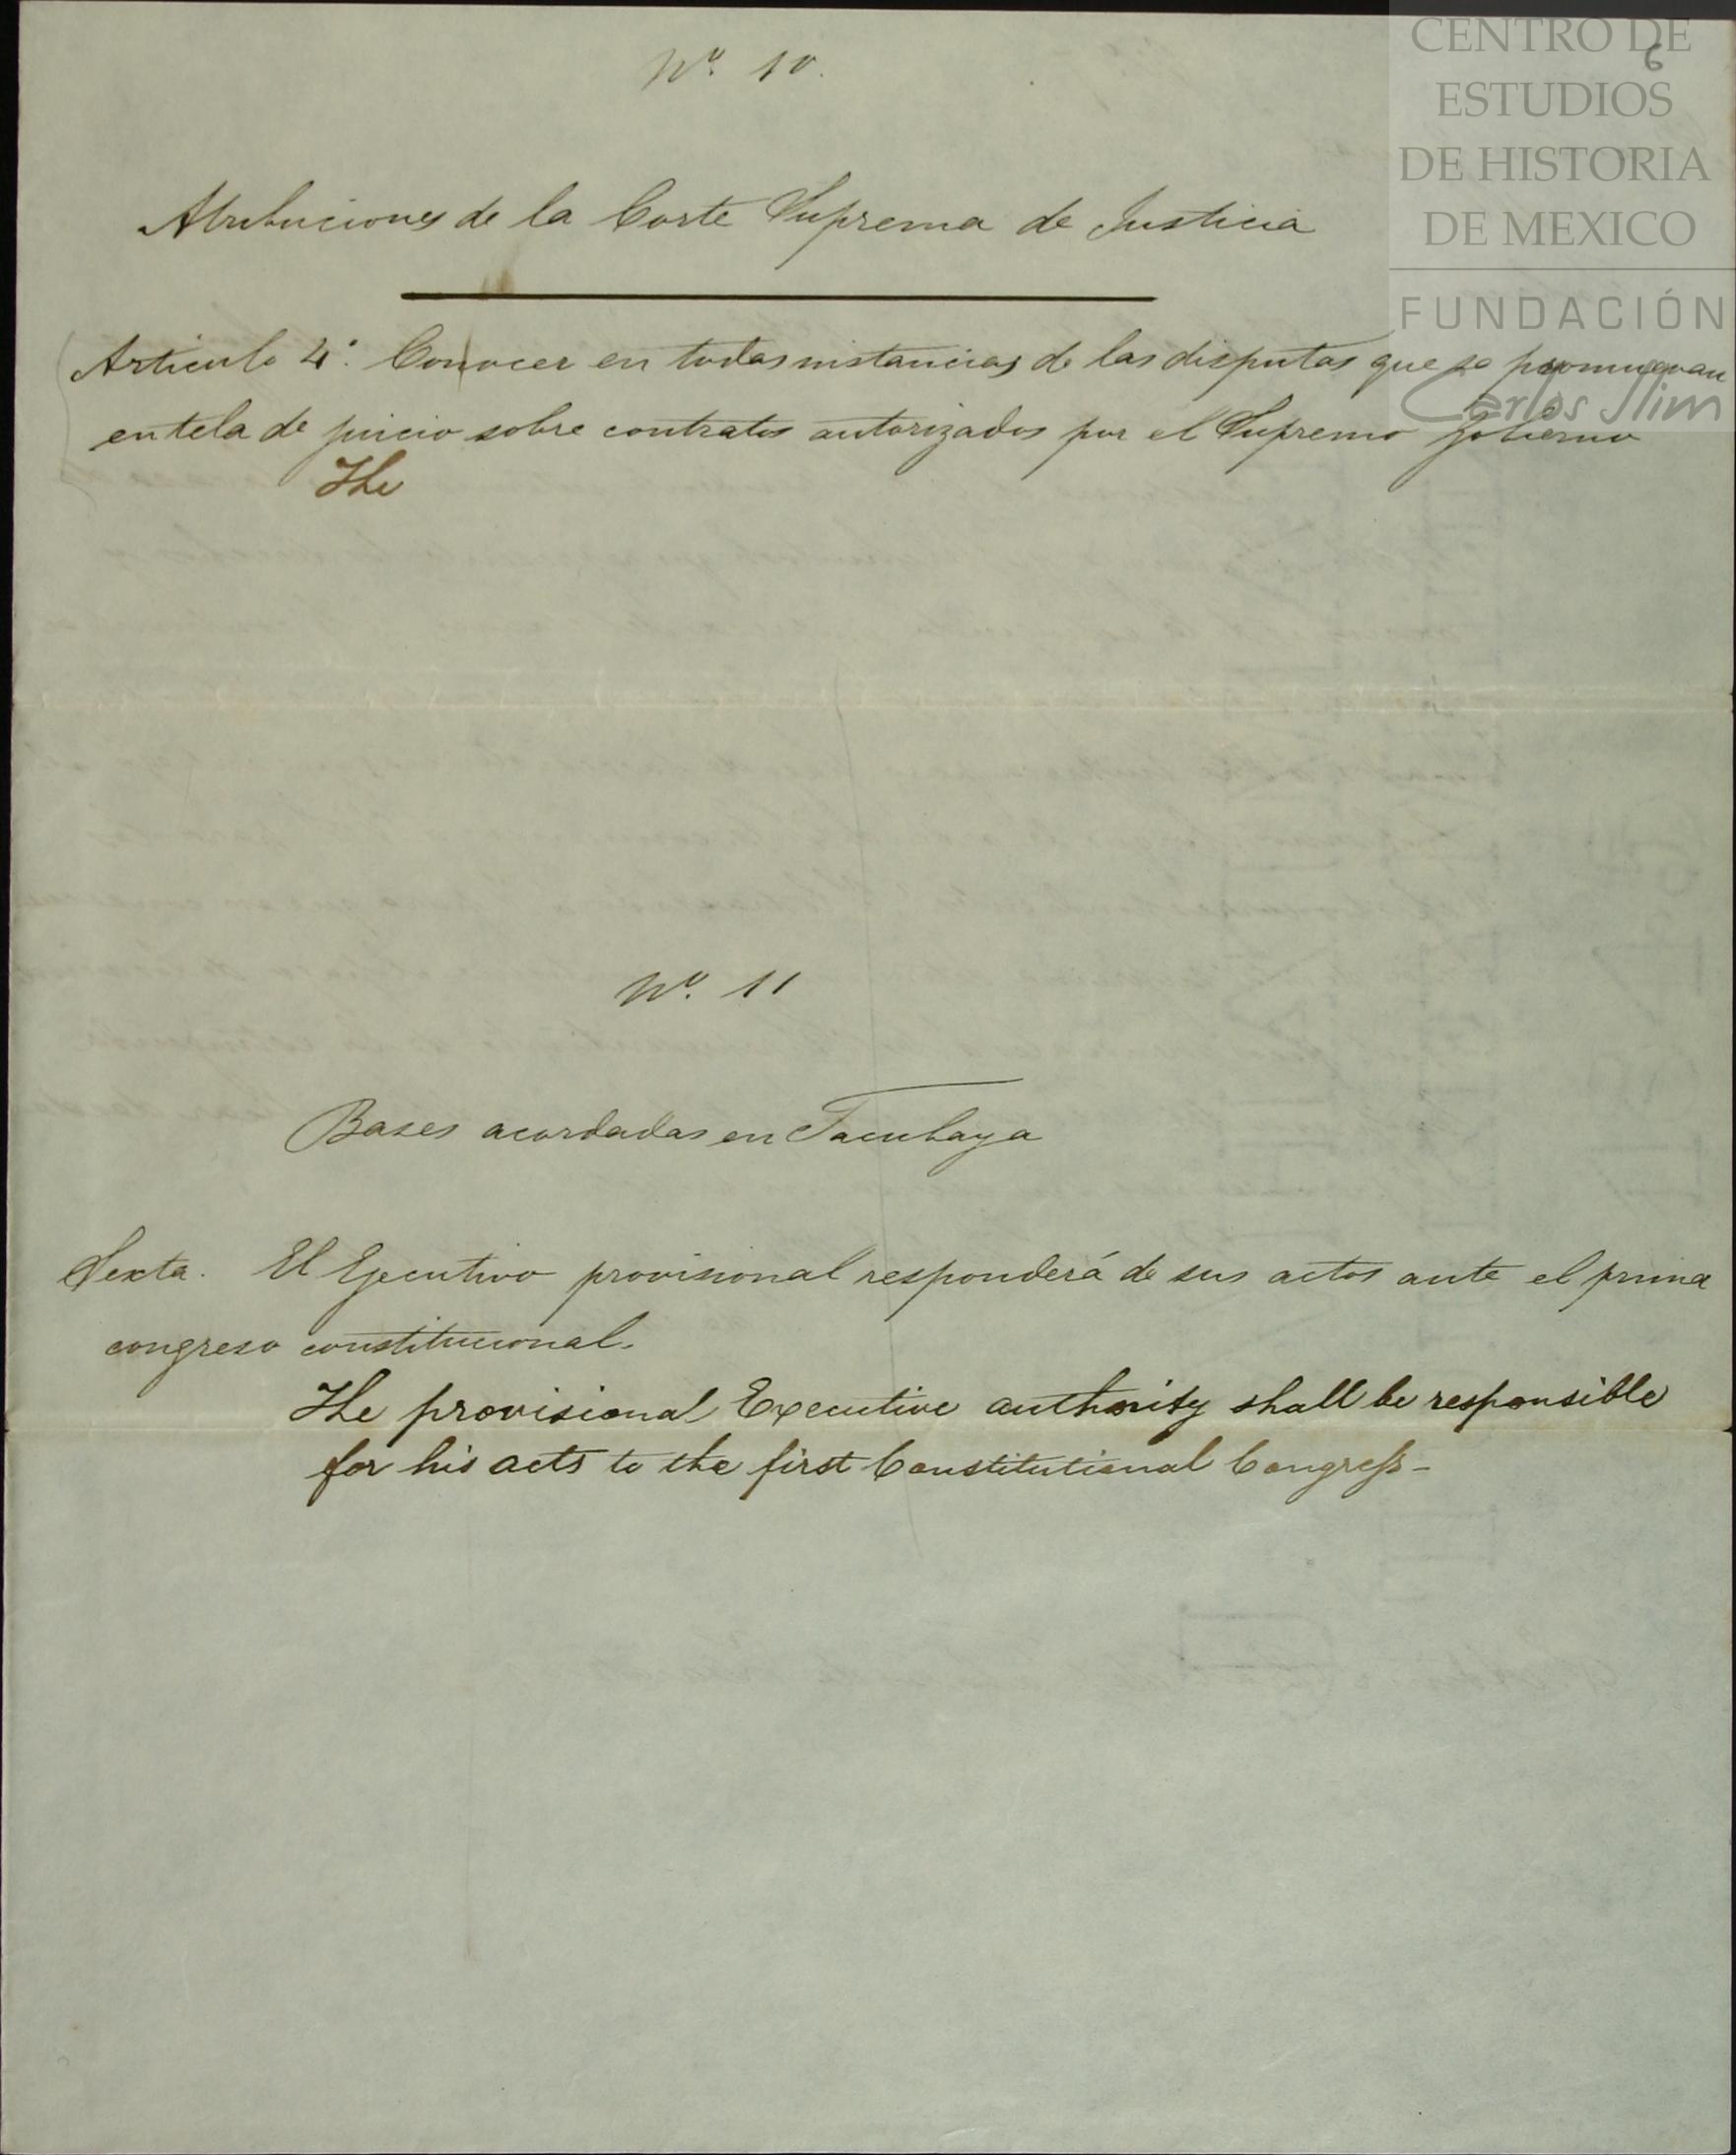 Nº. 10.
6
CENTRO DE
ESTUDIOS
DE HISTORIA
DE MEXICO
FUNDACIÓN
Carlos Slim
Atribuciones de la Corte Suprema de Justicia
Articulo 4º. Conocer en todas instancias de las disputas que se promuevan
en tela de juicio sobre contratos autorizados por el Supremo Gobierno
The
Nº. 11
Bases acordadas en Tacubaya
Sexta. El Ejecutivo provisional responderá de sus actos ante el primer
congreso constitucional.
The provisional Executive authority shall be responsible
for his acts to the first Constitutional Congress-